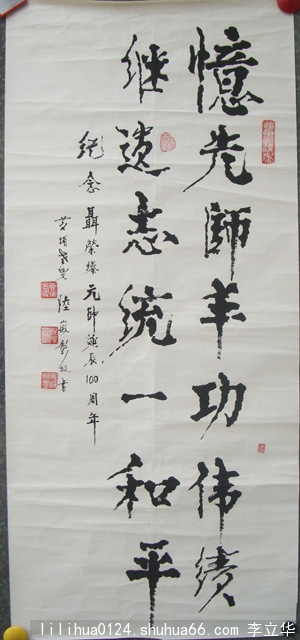 憶先師丰功伟绩
继遗志统一和平
纪念聶榮臻元帥誕辰100周年
黄埔老叟 陸
lilihua0124.shuhua66.com 李立华